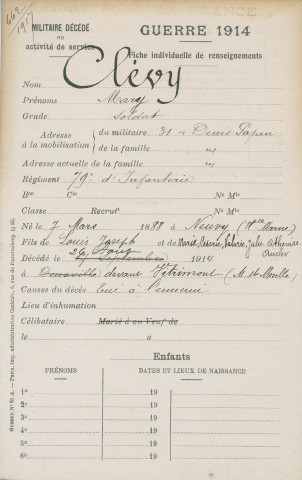 662
1917
MILITAIRE DÉCÉDÉ
en
activité de service
GUERRE 1914
Fiche individuelle de renseignements
Nom Clévy
Prénoms Mary
Grade Soldat
Adresse à la mobilisation du militaire 31 r Denis Papin
de la famille "
Adresse actuelle de la famille "
Régiment 79e d'Infanterie
Bon Cie No Mle
Classe Recrutt No Mle
Né le 7 Mars 1888 à (Hte Marne)
Fils de Louis Joseph et de Marie, Julie
29 Aout
Décédé le Septembre 1914
à devant Vitrimont (M. et Moselle)
Causes du décès Tué à l'ennemi
Lieu d'inhumation
Célibataire Marié à ou Veuf de
le à
Enfants
PRÉNOMS DATES ET LIEUX DE NAISSANCE
1o 19
2o 19
3o 19
4o 19
5o 19
6o 19